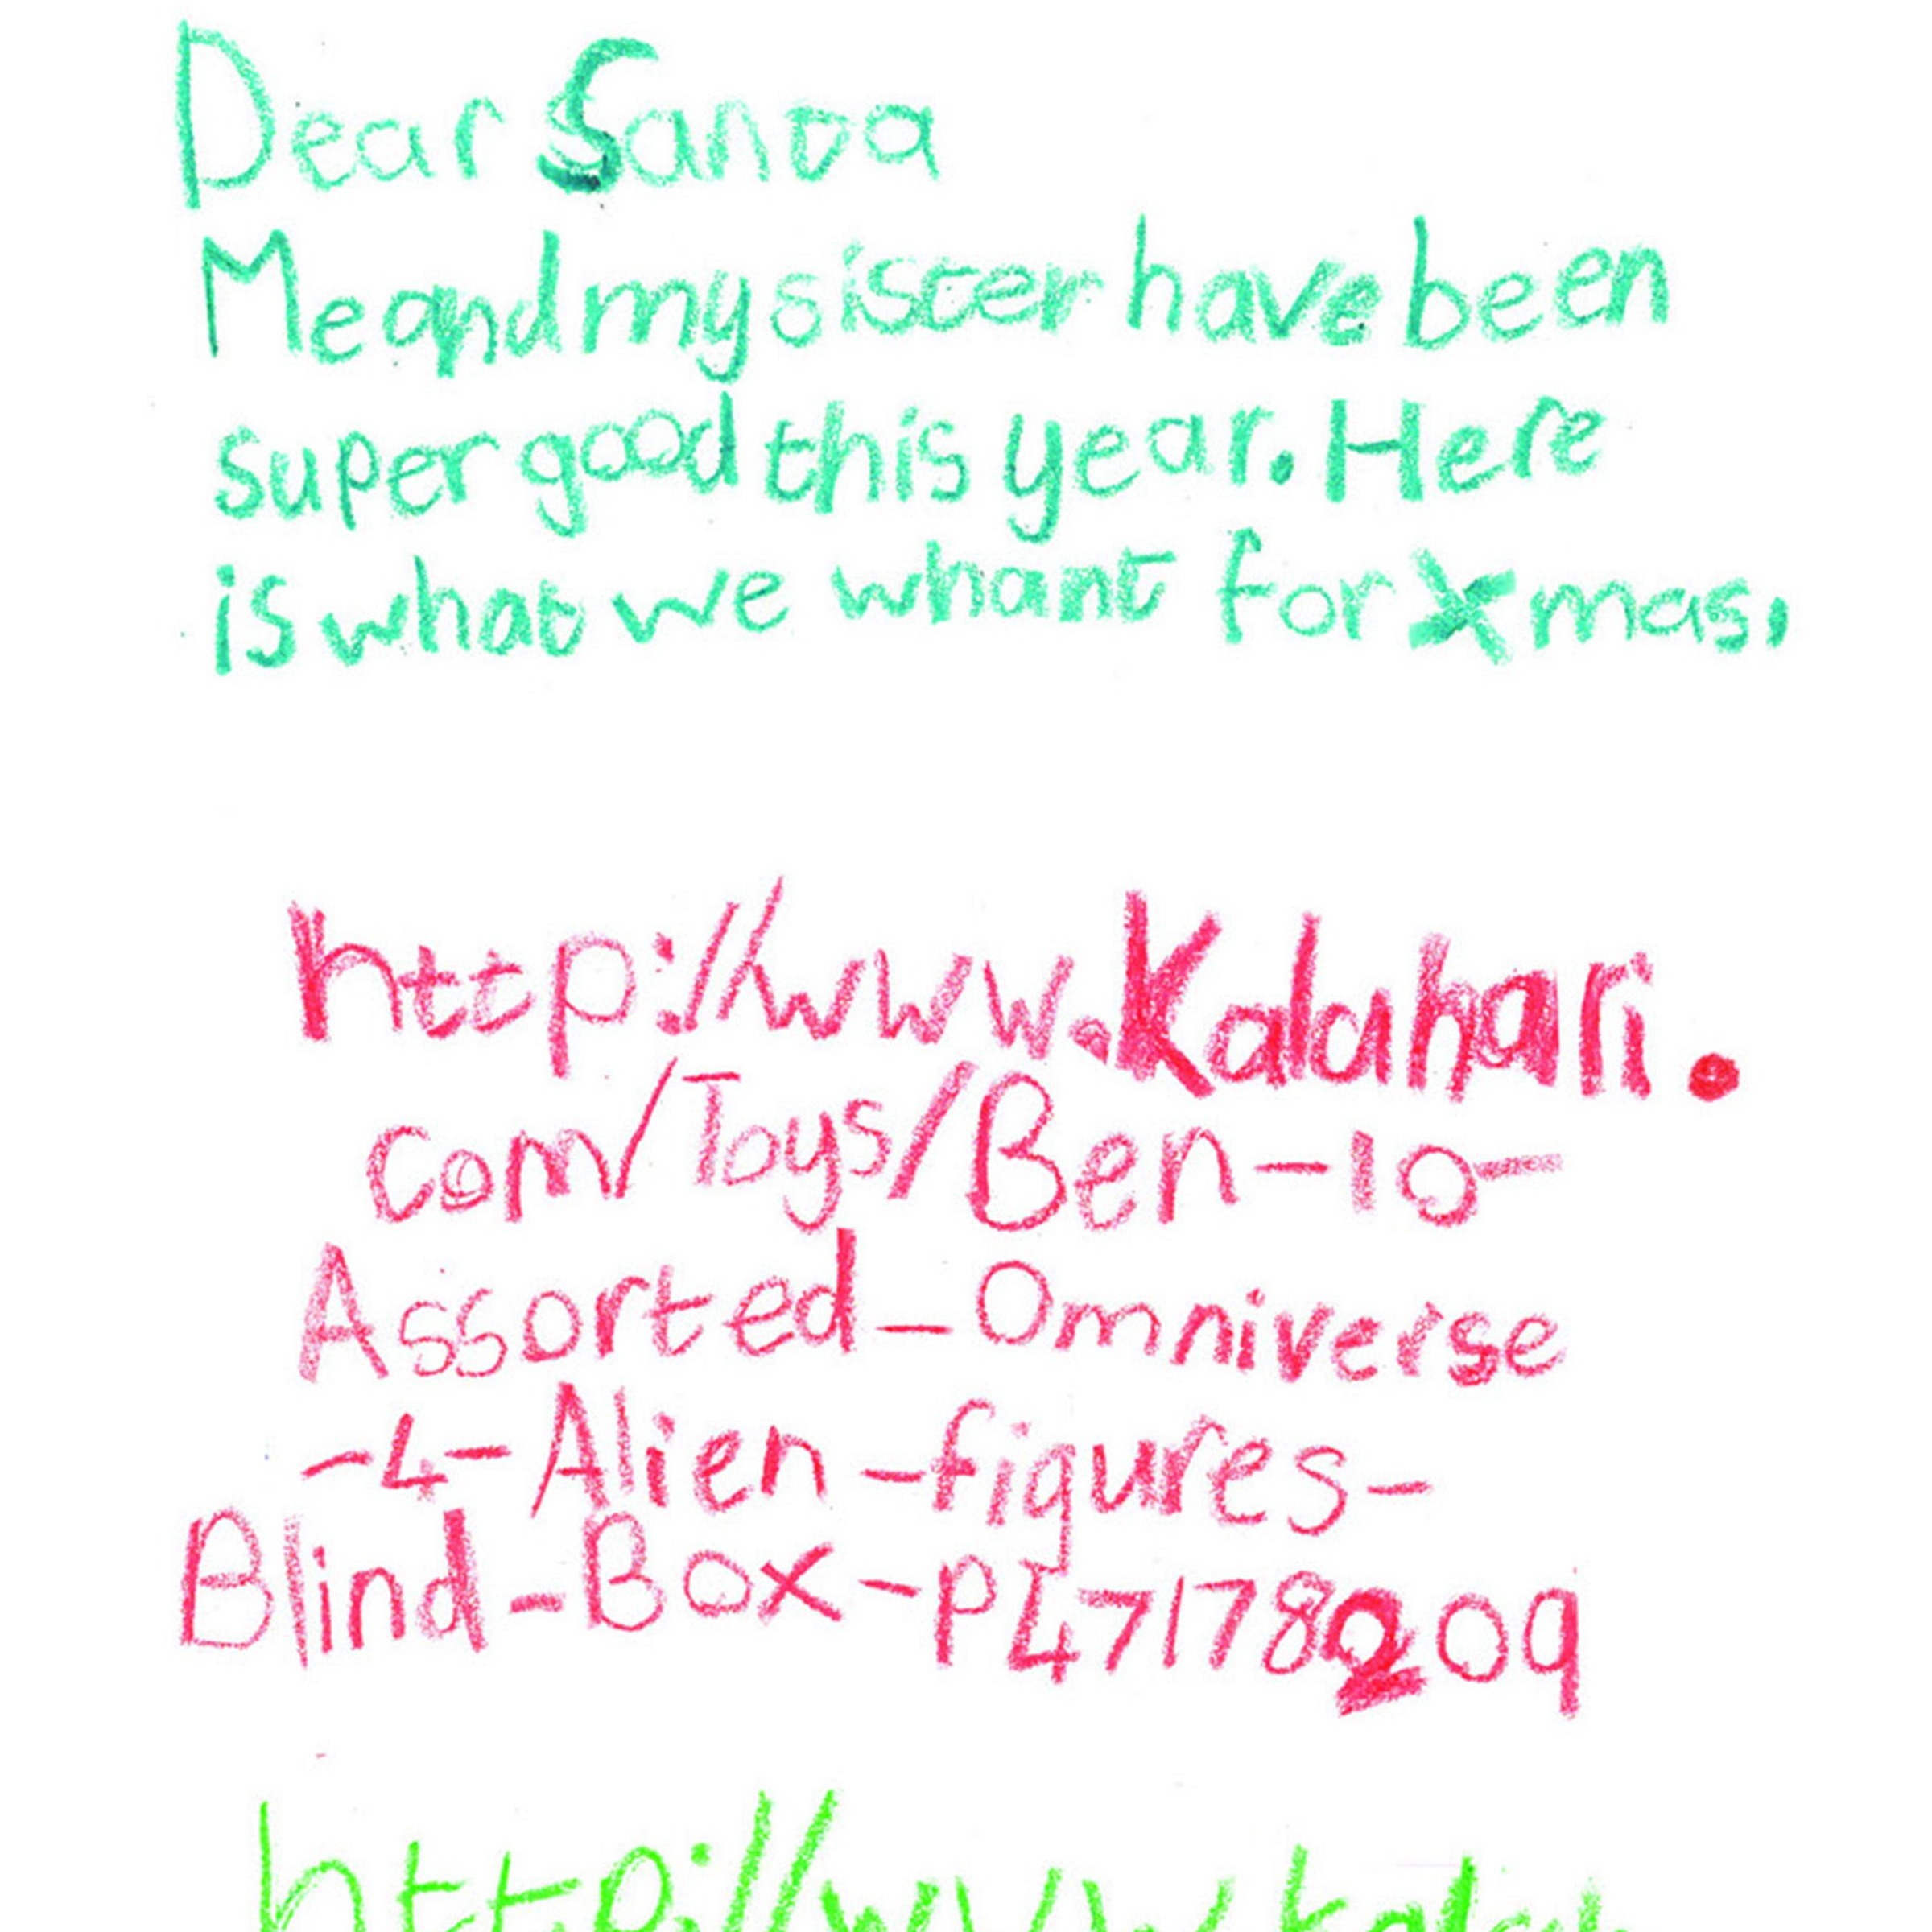 Dear Santa
Me and my sister have been
super good this year. Here
is what we whant for Xmas.
http://www.Kalahari.
com/Toys/Ben-10-
Assorted-Omniverse
-4-Alien-figures-
Blind-Box-P47178209
http://www.kalah